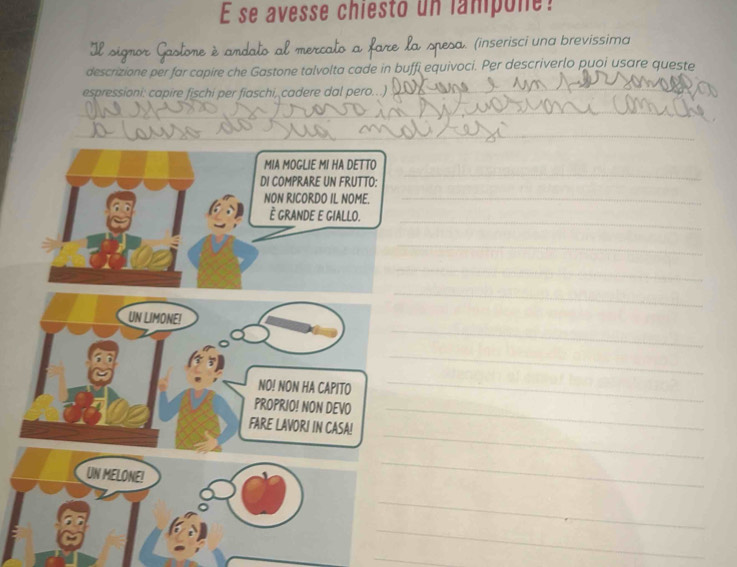 E se avesse chiesto un lampone?
Il signor Gastone è andato al mercato a fare la spesa. (inserisci una brevissima
descrizione per far capire che Gastone talvolta cade in buffi equivoci. Per descriverlo puoi usare queste
espressioni: capire fischi per fiaschi, cadere dal pero...) Gastone è un personaggio
che spesso si trova in situazioni comiche
a causa di sua
MIA MOGLIE MI HA DETTO
DI COMPRARE UN FRUTTO:
NON RICORDO IL NOME.
È GRANDE E GIALLO.
UN LIMONE!
NO! NON HA CAPITO
PROPRIO! NON DEVO
FARE LAVORI IN CASA!
UN MELONE!